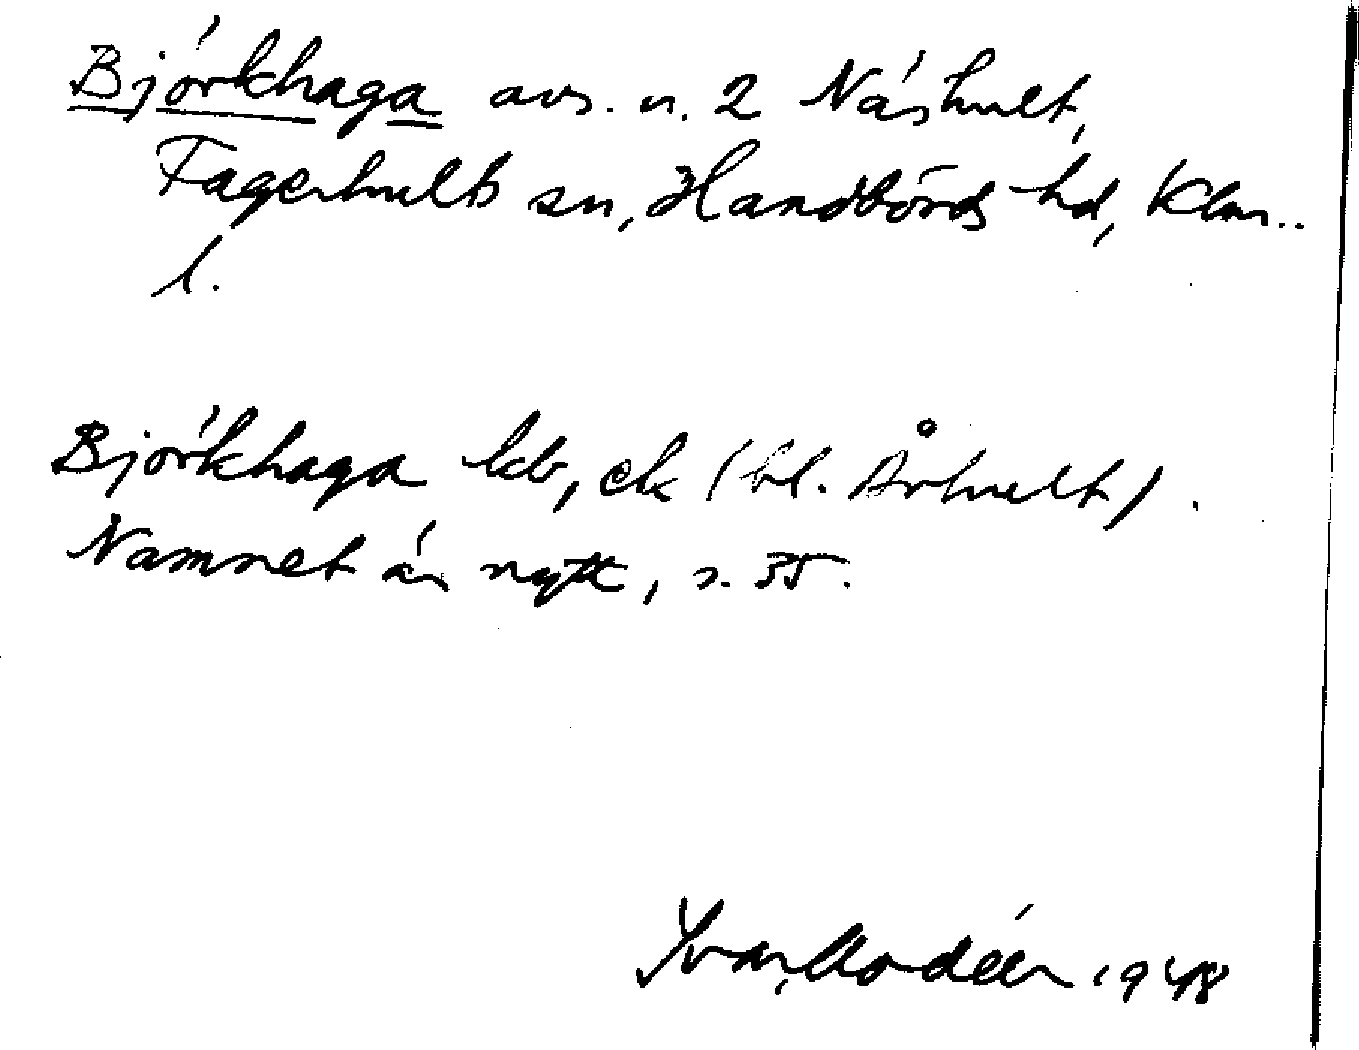 Björkhaga avs. u. 2 Näshult,
Fagerhults sn, Handbörds hd, Klm..
l.
Björkhaga kb, ek (bl. Århult).
Namnet är nytt, s. 35.
Ivar Modéer 1948